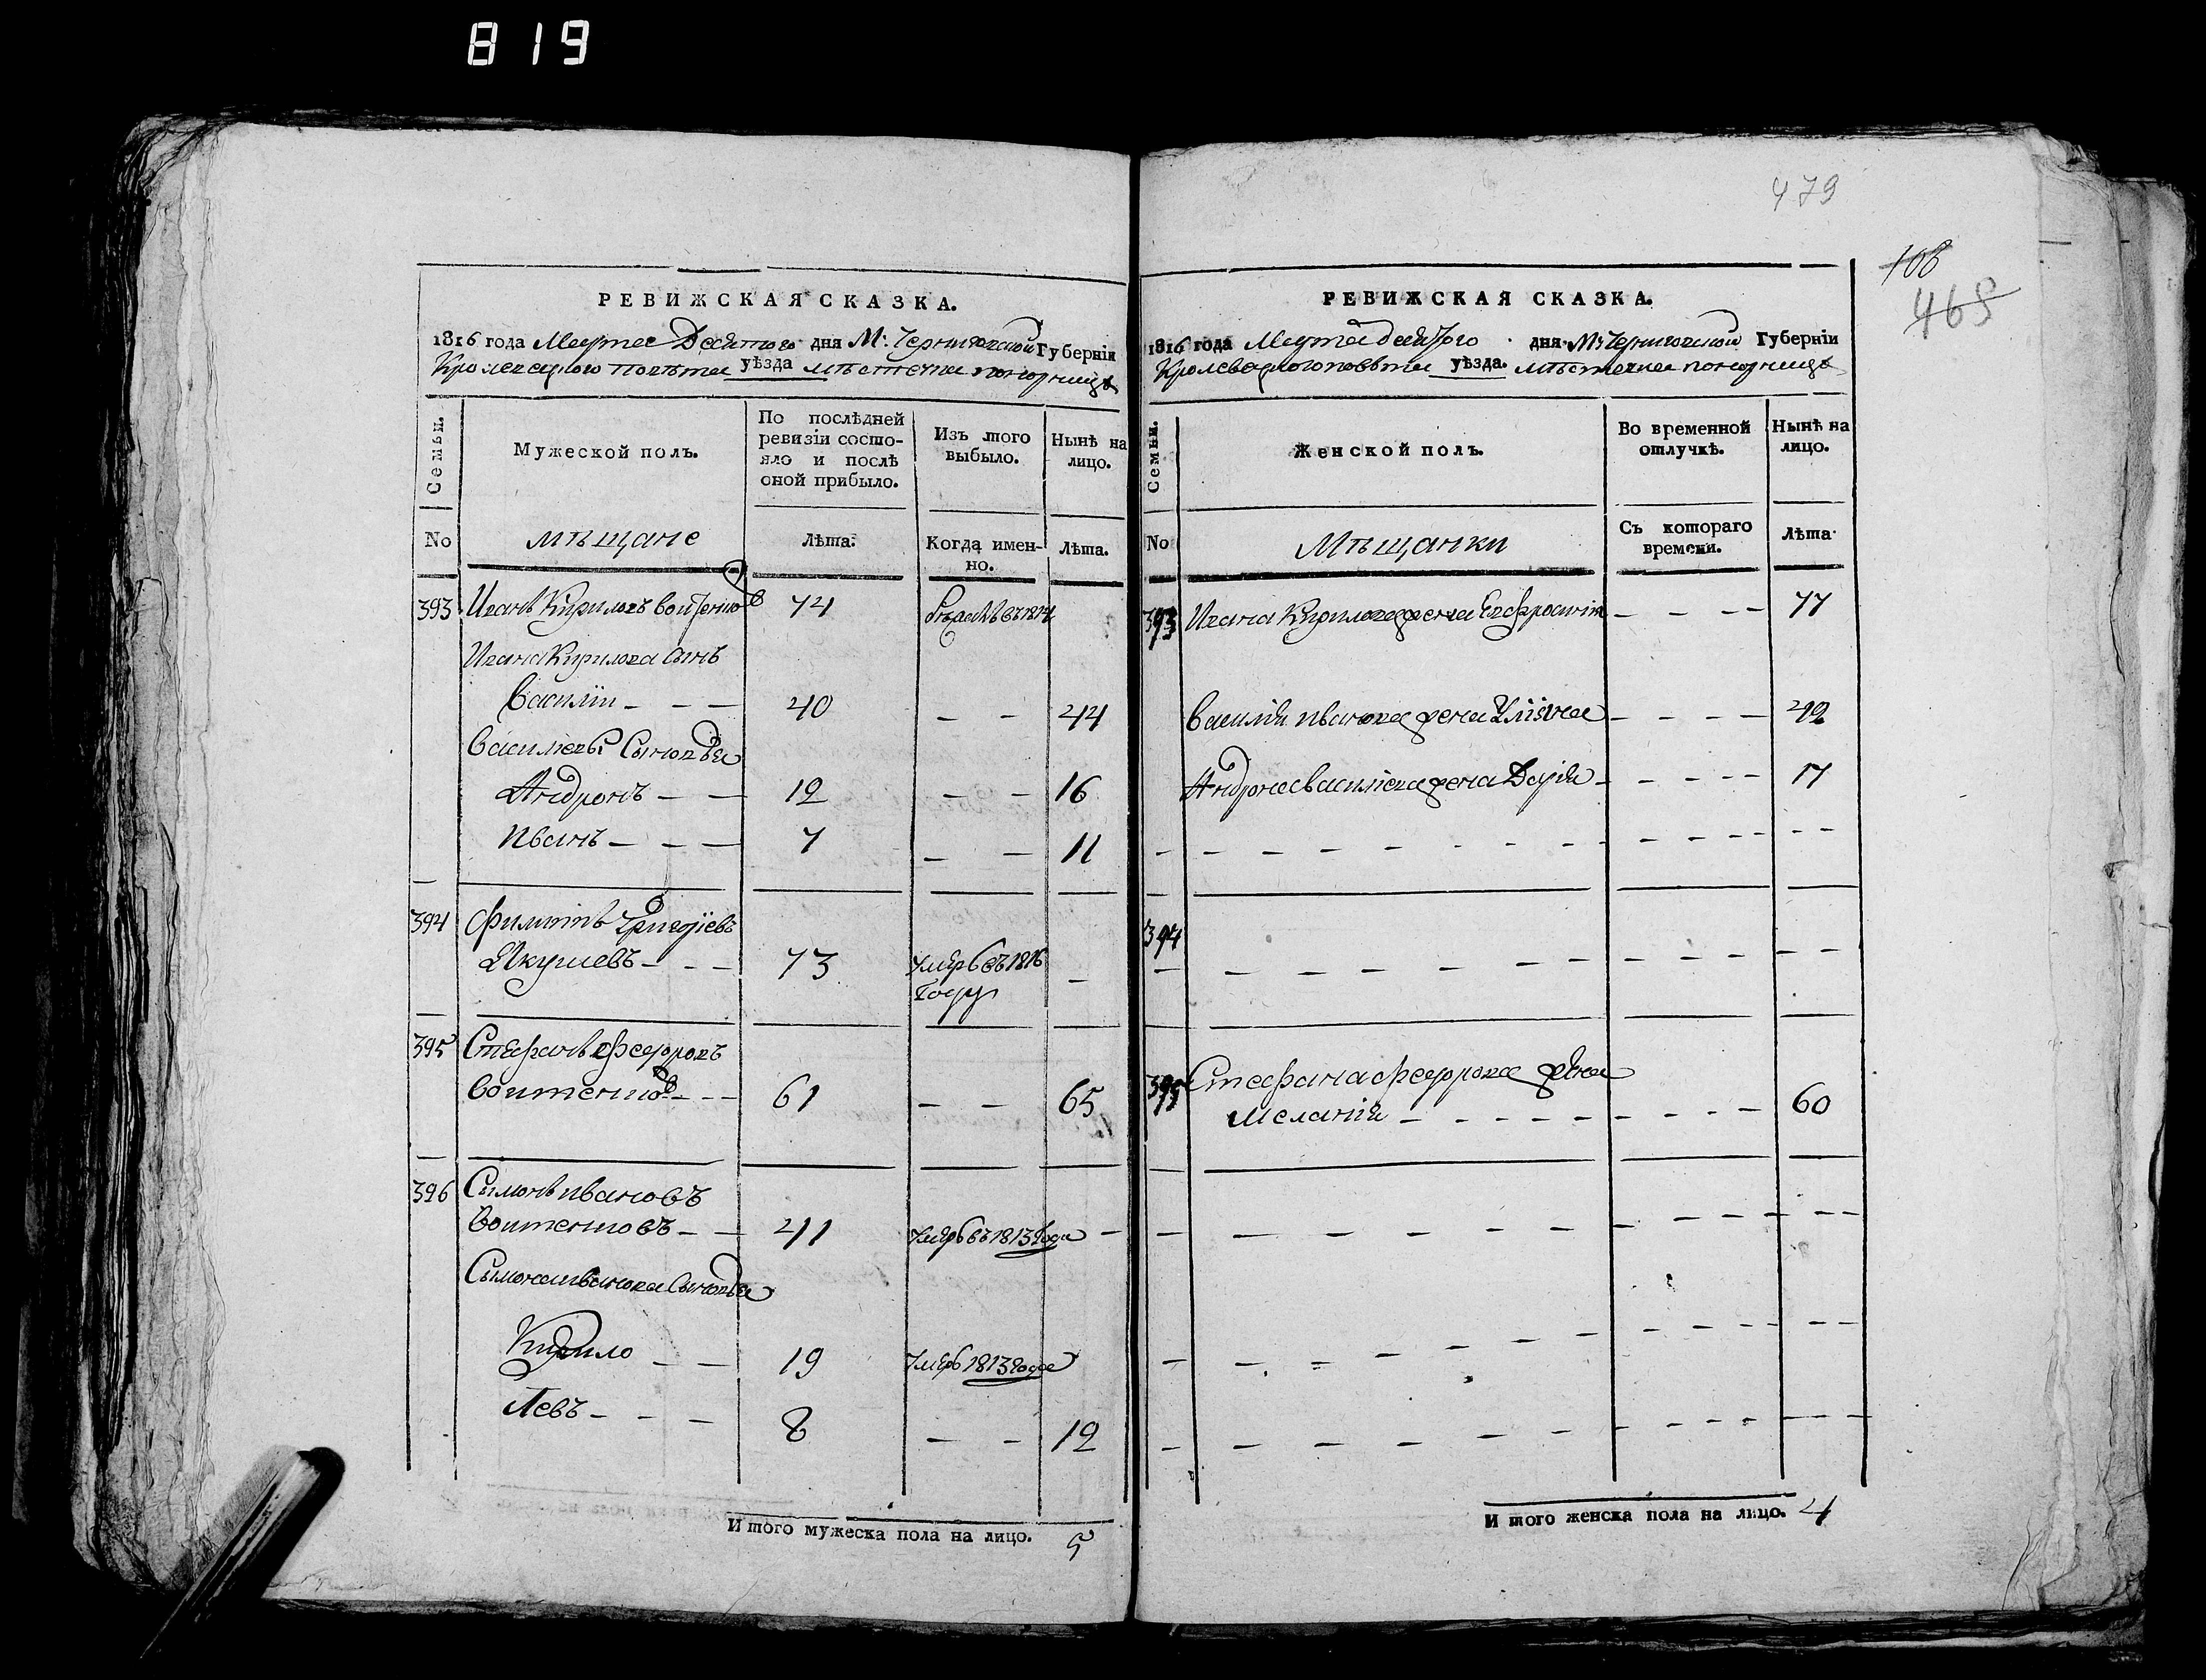 819
РЕВИЖСКАЯ СКАЗКА.
1816 года Марта Десятого дня М: Черниговской Губерніи
Кролевецкого повѣта уѣзда мѣстечка понорницѣ
Семьи.
Мужеской полъ.
По послѣдней
ревизіи состо-
яло и послѣ
оной прибыло.
Изъ того
выбыло.
Нынѣ на
лицо.
No
мѣщане
Лѣта.
Когда имен-
но.
Лѣта.
393 Иванъ Кириловъ Воитенков 74 въ 1814
Ивана Кирилова Сынъ
Василіи 40 44
Василіевы Сыновья
Андронъ 12 16
Иванъ 7 11
394 Филиппъ Григоріевъ
Якушевъ 73 умеръ въ 1816
Году
395 Стефанъ Федоровъ
Воитенков 61 65
396 Симонъ Ивановъ
Воитенковъ 41 умеръ въ 1813 Года
Симона Иванова Сыновья
Кирило 19 умеръ 1813 Года
Левъ 8 12
Итого мужеска пола на лицо. 5
479
106
465
РЕВИЖСКАЯ СКАЗКА.
1816 года Марта десятого дня М: Черниговской Губерніи
Кролевецкого повѣта уѣзда. мѣстечка понорницѣ
Семьи.
Женской полъ.
Во временной
отлучкѣ.
Нынѣ на
лицо.
No
Мѣщанки
Съ котораго
времени.
Лѣта.
393 Ивана Кирилова жена Евфросинія 77
Василія Иванова жена Уліяна 42
Андрона Василіева жена Дарія 17
394
395 Стефана Федорова жена
Меланія 60
Итого женска пола на лицо. 4